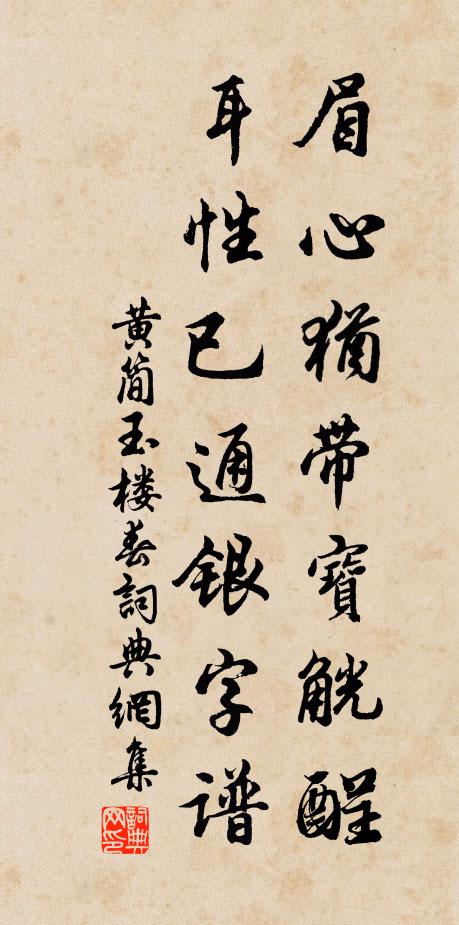 眉心猶帶寶觥醒
耳性已通銀字譜
黄简玉楼春詞典網集
詞典网印